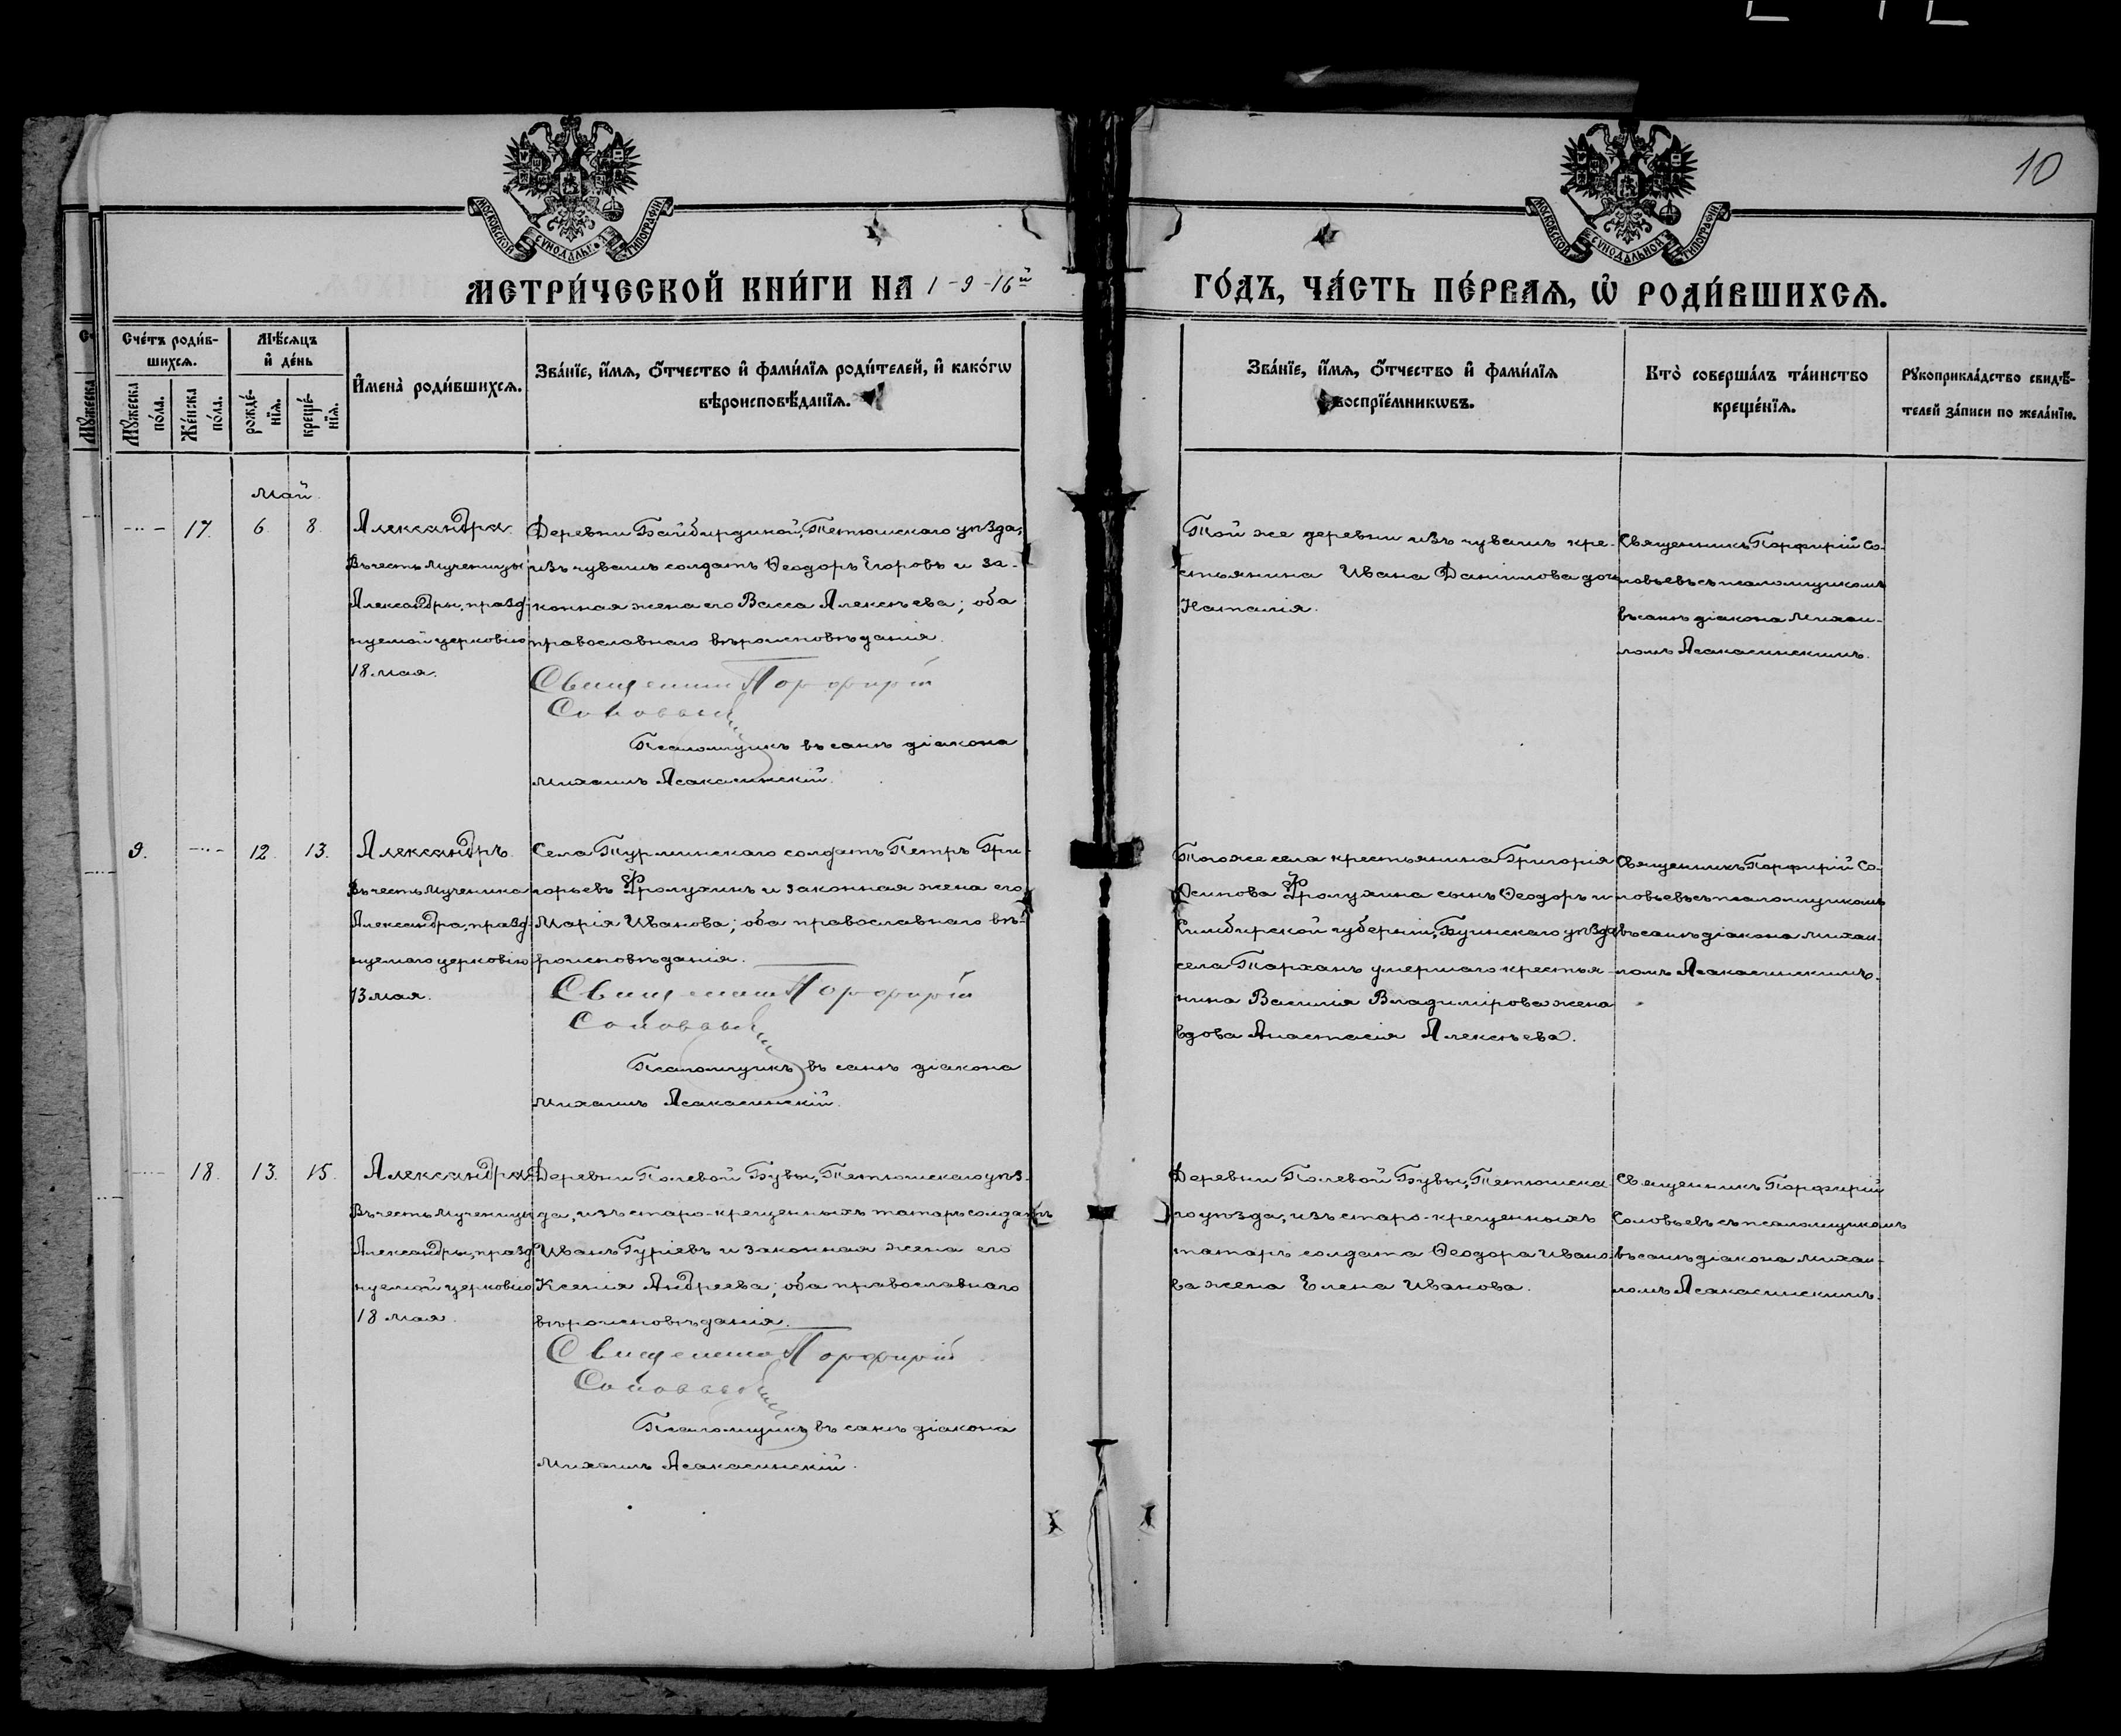 10
МОСКОВСКОЙ СѴНОДАЛЬНОЙ ТИПОГРАФІИ
МОСКОВСКОЙ СѴНОДАЛЬНОЙ ТИПОГРАФІИ
МЕТРИ́ЧЕСКОЙ КНИ́ГИ НА 1-9-16й
ГО́ДЪ, ЧА́СТЬ ПЕ́РВАѦ, Ѡ҆ РОДИ́ВШИХСѦ.
Сче́тъ роди́в-
шихсѧ.
Мꙋ́жеска по́ла.
Же́нска по́ла.
Мѣ́сѧцъ
и҆ де́нь
рожде́-
нїѧ.
креще́-
нїѧ.
И҆мена̀ роди́вшихсѧ.
Зва́нїе, и҆́мѧ, ѻ҆́тчество и҆ фами́лїѧ роди́телей, и҆ како́гѡ
вѣроисповѣ́данїѧ.
Зва́нїе, и҆́мѧ, ѻ҆́тчество и҆ фами́лїѧ
воспрїе́мникѡвъ.
Кто̀ соверша́лъ та́инство
креще́нїѧ.
Рꙋкоприкла́дство свидѣ́-
телей за́писи по жела́нїю.
Май
17. 6. 8.
Александра.
Въ честь мученицы
Александры, празд-
нуемой церковію
18 мая.
Деревни Байбирдиной, Тетюшскаго уѣзда,
изъ чувашъ солдатъ Ѳеодоръ Егоровъ и за-
конная жена его Васса Алексѣева; оба
православнаго вѣроисповѣданія.
Священникъ Порфирій
Соловьевъ
Псаломщикъ въ санѣ діакона
Михаилъ Асакасинскій.
Той же деревни изъ чувашъ кре-
стьянина Ивана Данилова дочь
Наталія.
Священникъ Порфирій Со-
ловьевъ съ псаломщикомъ
въ санѣ діакона Михаи-
ломъ Асакасинскимъ.
9. 12. 13.
Александръ.
Въ честь мученика
Александра, празд-
нуемаго церковію
13 мая.
Села Турминскаго солдатъ Петръ Гри-
горьевъ Фролухинъ и законная жена его
Марія Иванова; оба православнаго вѣ-
роисповѣданія.
Священникъ Порфирій
Соловьевъ
Псаломщикъ въ санѣ діакона
Михаилъ Асакасинскій.
Того же села крестьянина Григорія
Осипова Фролухина сынъ Ѳеодоръ и
Симбирской губерніи, Буинскаго уѣзда
села Тарханъ умершаго крестья-
нина Василія Владимірова жена
вдова Анастасія Алексѣева.
Священникъ Порфирій Со-
ловьевъ съ псаломщикомъ
въ санѣ діакона Михаи-
ломъ Асакасинскимъ.
18. 13. 15.
Александра.
Въ честь мученицы
Александры, празд-
нуемой церковію
18 мая.
Деревни Полевой Бувы, Тетюшскаго уѣз-
да, изъ старо-крещенныхъ татаръ солдатъ
Иванъ Гуріевъ и законная жена его
Ксенія Андреева; оба православнаго
вѣроисповѣданія.
Священникъ Порфирій
Соловьевъ
Псаломщикъ въ санѣ діакона
Михаилъ Асакасинскій.
Деревни Полевой Бувы, Тетюшска-
го уѣзда, изъ старо-крещенныхъ
татаръ солдата Ѳеодора Ивано-
ва жена Елена Иванова.
Священникъ Порфирій
Соловьевъ съ псаломщикомъ
въ санѣ діакона Михаи-
ломъ Асакасинскимъ.